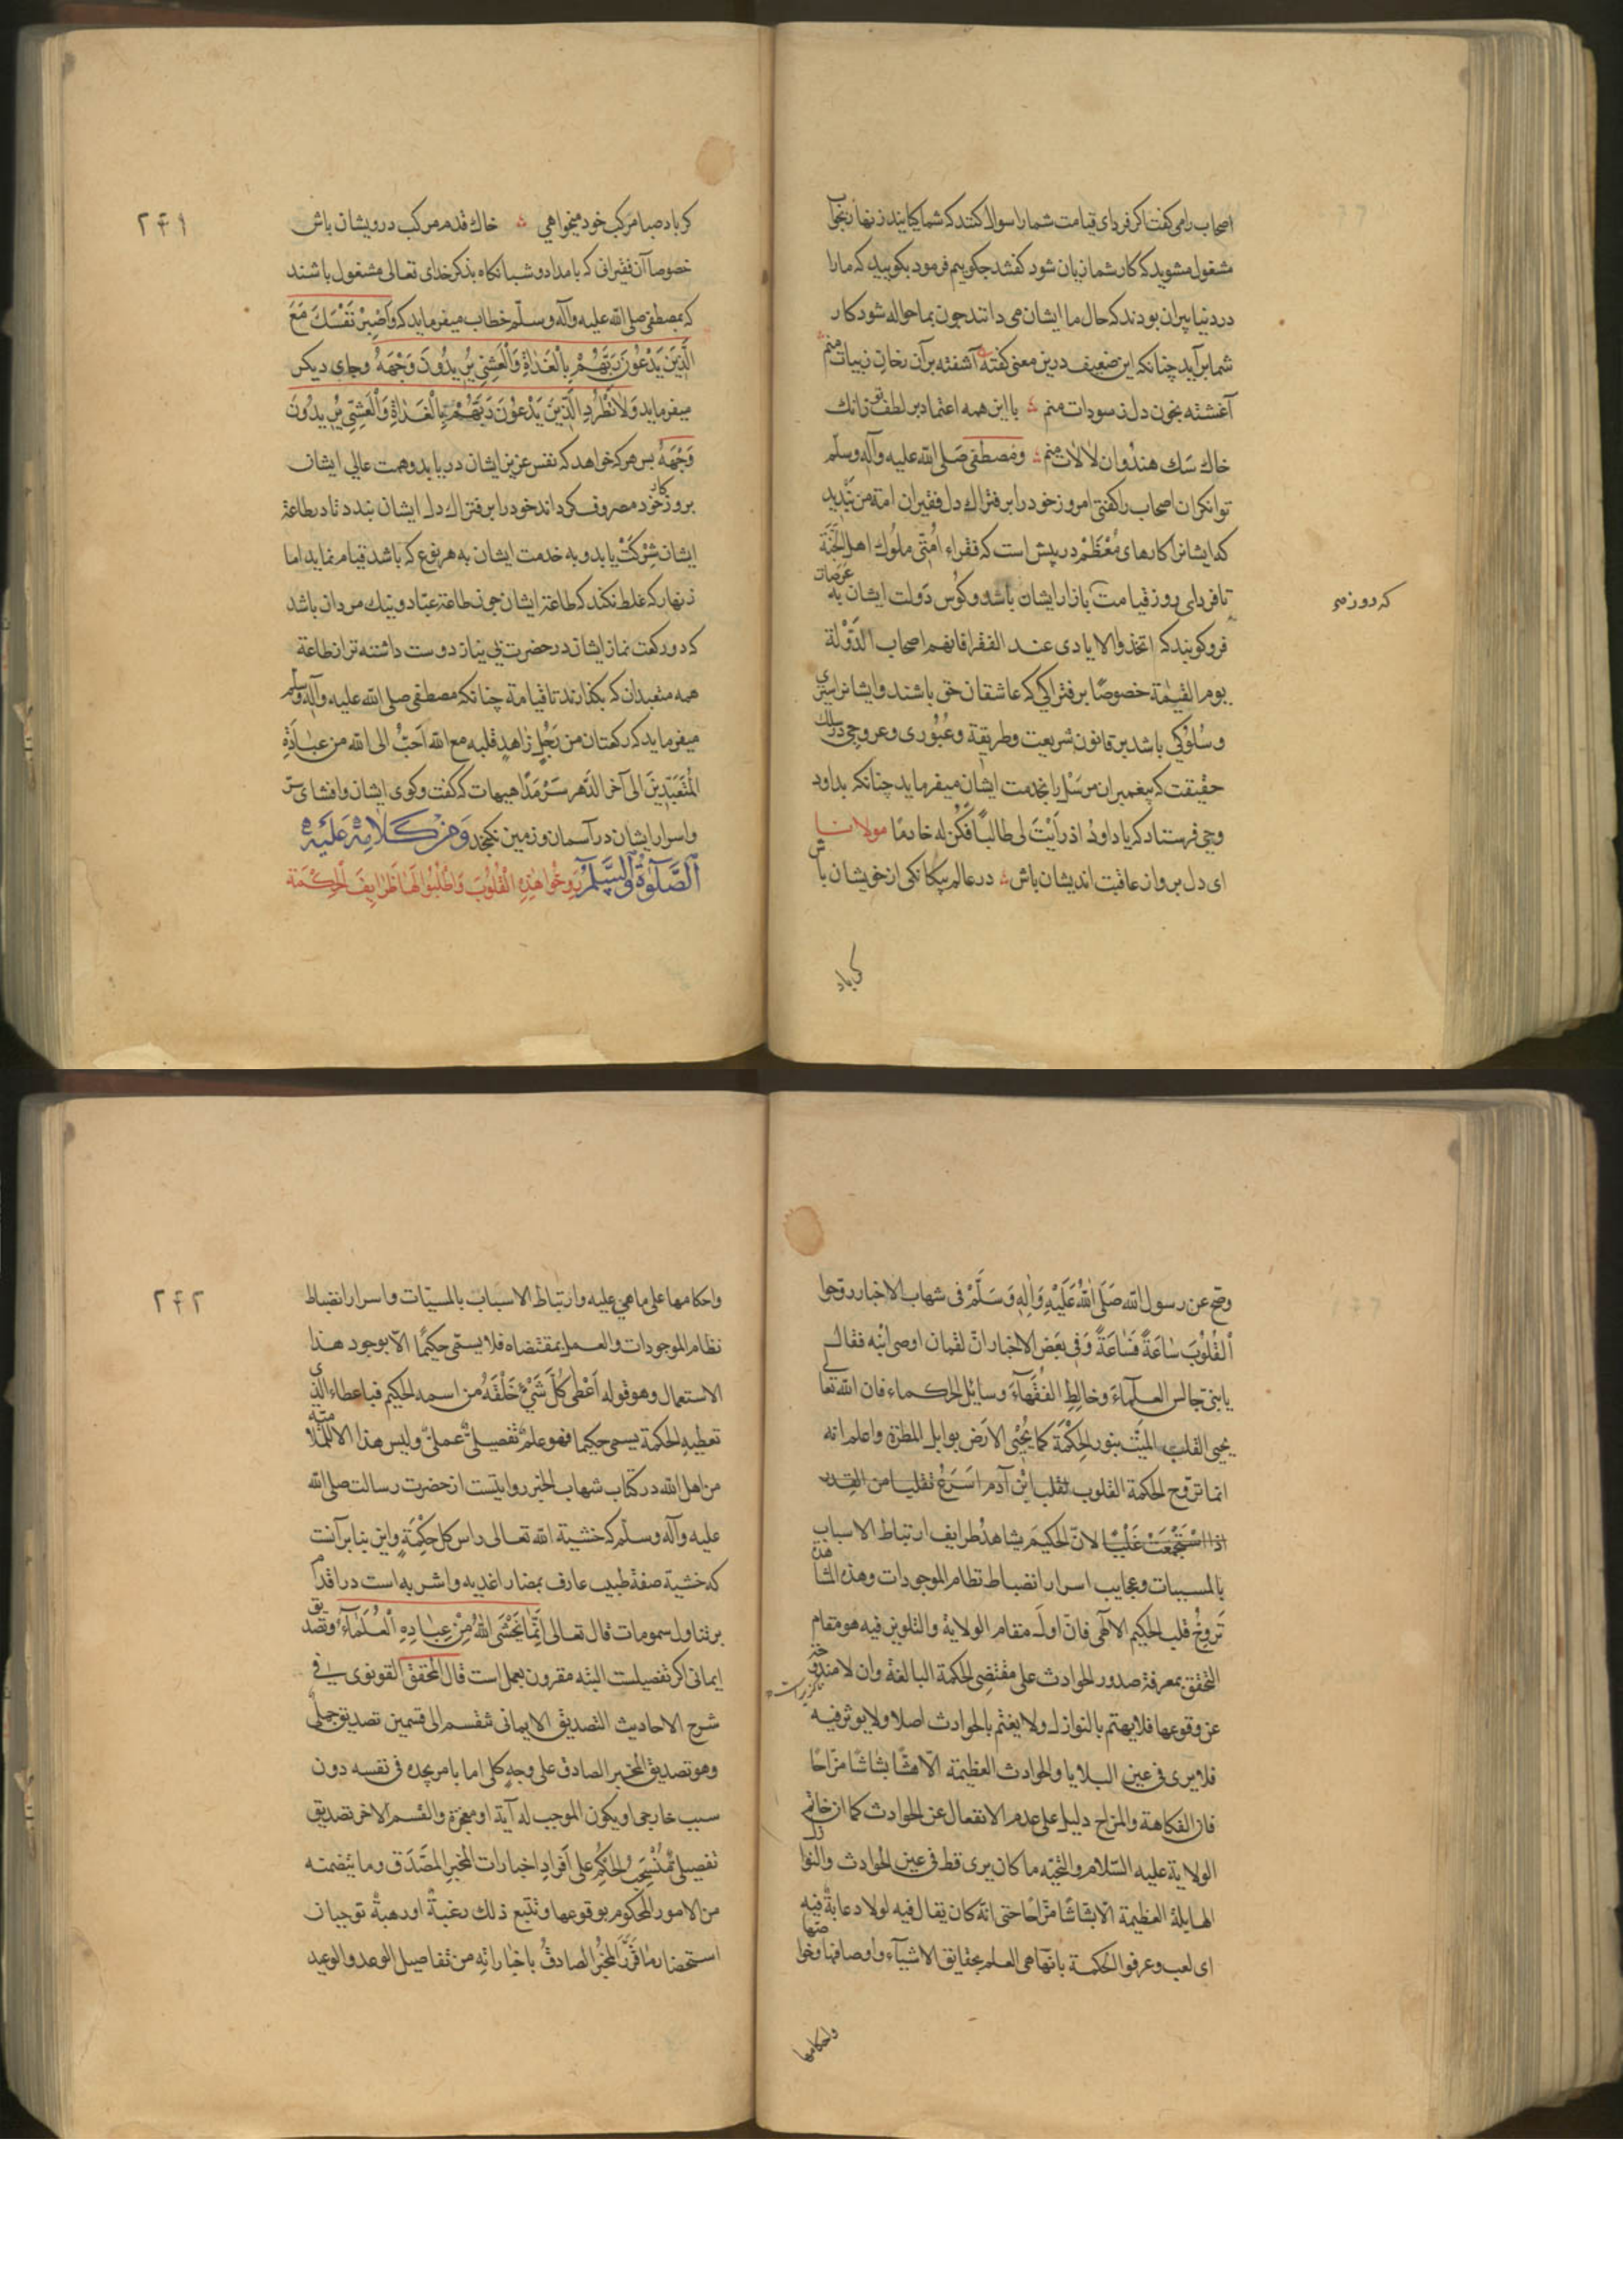 اصحاب را می کفت اکر فردای قیامت شمارا سوال کنند که شما کیایند زنهار بجواب
مشغول مشوید که کار شما زیان شود کفتند چکوییم فرمود بکویید که مارا
در دنیا پیران بودند که حال ما ایشان می دانند چون بما حواله شود کار
شما برآید چنانکه این ضعیف درین معنی کفته آشفته بران زیبات منم
آغشته بخون دل سودات منم با این همه اعتماد بر لطف تو زانک
خاك سك هندوان لالات منم و مصطفی صلی الله علیه وآله وسلم
توانکران اصحاب را کفتی امروز خود را بر فتراك دل فقیران امة من بندید
که ایشانرا کارهای معظم در پیش است که فقراء امتی ملوك اهل الجنة
تا فردای روز قیامت بازار ایشان باشد و کوس دولت ایشان به عرصات
که روز
فرو کویند که اتخذوا الایادی عند الفقرا فانهم اصحاب الدولة
یوم القیمة خصوصا بر فتراکی که عاشقان حق باشند و ایشانرا سیری
و سلوکی باشد بر قانون شریعت و طریقة و عبوری و عروجی در سلك
حقیقت که پیغمبران مرسل را بخدمت ایشان میفرماید چنانکه بداود
وحی فرستاد که یا داود اذ رایت لی طالبا فکن له خادما مولانا
ای دل برو از عاقبت اندیشان باش در عالم بیکانکی از خویشان باش
کر باد
۲۴۱
کر باد صبا مرکب خود میخواهی خاك قدم مرکب درویشان باش
خصوصا آن فقیرانی که بامداد و شبانکاه بذکر خدای تعالی مشغول باشند
که بمصطفی صلی الله علیه وآله وسلم خطاب میفرماید که وَاصْبِرْ نَفْسَكَ مَعَ
الَّذِينَ يَدْعُونَ رَبَّهُمْ بِالْغَدَاةِ وَالْعَشِيِّ يُرِيدُونَ وَجْهَهُ وجای دیکر
میفرماید وَلَا تَطْرُدِ الَّذِينَ يَدْعُونَ رَبَّهُمْ بِالْغَدَاةِ وَالْعَشِيِّ يُرِيدُونَ
وَجْهَهُ بس هرکه خواهد که نفس عزیز ایشان دریابد و همت عالی ایشان
بروزکار خود مصروف کرداند خود را بر فتراك دل ایشان بندد تا در طاعة
ایشان شرکت یابد و به خدمت ایشان به هر نوع که باشد قیام نماید اما
زنهار که غلط نکند که طاعة ایشان چون طاعة عباد و نیك مردان باشد
که دو رکعت نماز ایشان در حضرت بی نیاز دوست داشته تر از طاعة
همه متعبدان که بکذارند تا قیامة چنانکه مصطفی صلی الله علیه وآله وسلم
میفرماید که رکعتان من رَجُلٍ زاهدٍ قلبه مع الله اَحَبُّ الی الله من عبادَةِ
المُتَعَبِّدِینَ الی آخر الدَّهر سَرْمَدًا هیهات که کفت و کوی ایشان و افشای سر
و اسرار ایشان در آسمان و زمین نکنجد وَمِنْ كَلَامِهْ عَلَيْهِ
الصَّلٰوةُ وَالسَّلٰمُ رَوِّحُوا هٰذِهِ الْقُلُوبَ وَاطْلُبُوا لَهَا طَرَايِفَ الْحِكْمَة
وصح عن رسول الله صَلَّى اللهُ عَلَيْهِ وَآلِهِ وَسَلَّمْ فی شهاب الاخبار روّحوا
الْقُلُوبَ ساعَةً فَساعَةً وَفی بَعْضِ الاخبار انّ لقمان اوصی ابْنه فقال
یا بنی جالس العلمآءَ وخالِطِ الفُقَهآءَ وسایل الحکماء فان الله تعالی
یحیی القلب المیّت بنور الحِکْمَة کما یُحْیِی الارَض بوابل المطرة واعلم انه
انما تروّح الحکمة القلوب تقلب ابْن آدم اسَرَعُ تقلبا من القِدر
اذا اسْتَجْمَعَتْ غَلْیًا لانّ الحکیمَ یشاهدُ طرایف ارتباط الاسباب
بالمسببات وعجایب اسرار انضباط نظام الموجودات وهذه المشاهدة
تَروِیحُ قلب الحکیم الالٓهی فانّ اولَ مقام الولایة والتلوین فیه هو مقام
التحقق بمعرفة صدور الحوادث علی مقتضی الحکمة البالغة وان لا مندوحة
عن وقوعها فلا یهتم بالنوازل ولا یغتم بالحوادث اصلا ولا یوثر فیه
فلا یری فی عین البلایا والحوادث العظیمة الّا هشّا بشّاشا مزّاحًا
فان الفکاهة والمزاح دلیل علی عدم الانفعال عن الحوادث کما ان خاتم
الولایة علیه السّلام والتحیّه ما کان یری قط فی عین الحوادث والنوازل
الهایلة العظیمة الّا بشاشًا مزّاحًا حتی انه کان یقال فیه لولا دعابةٌ فیه
ای لعب وعرفوا الحکمة بانّها هی العلم بحقایق الاشیآء واوصافها وخواصّها
واحکامها
۲۴۲
واحکامها علی ما هی علیه وارتباط الاسباب بالمسببات واسرار انضباط
نظام الموجودات والعمل بمقتضاه فلا یسمّی حکیمًا الّا بوجود هذا
الاستعمال وهو قوله اَعْطٰى كُلَّ شَيْءٍ خَلْقَهُ من اسمه الحکیم فباعطاء الذی
تعطیهِ الحکمة یسمی حکیما فهو علمٌ تفصیلیٌّ عملیٌّ ولیس هذا الّا للملامتیّة
من اهل الله در کتاب شهاب الخبر روایتست از حضرت رسالت صلی الله
علیه وآله وسلّم که خشیة الله تعالی راس کل حِکْمَةٍ واین بنا برآنست
که خشیة صفة طبیب عارف بمضار اغذیه و اشربه است در اقدام
بر تناول سمومات قال تعالی اِنَّمَا يَخْشَى اللهَ مِنْ عِبَادِهِ الْعُلَمٰٓاءُ وتصدیق
ایمانی اکر تفصیلست البته مقرون بعمل است قال المحقق القونوی فی
شرح الاحادیث التصدیق الایمانی تنقسم الی قسمین تصدیق جملی
وهو تصدیق المخبر الصادق علی وجهٍ کلی اما بامر یجده فی نفسه دون
سبب خارجی او یکون الموجب له آیة او معجزة والقسم الاخر تصدیق
تفصیلی مُنْسَحِبُ الحُکم علی اَفرادِ اخبارات المخبر المصَّدَق وما یتضمنه
من الامور المحکوم بوقوعها وتتبع ذلك رغبةٌ او رهبةٌ توجبان
استحضار ما قَرَّرَ المخبُر الصادقُ باخباراتِهِ من تفاصیل الوعد والوعید